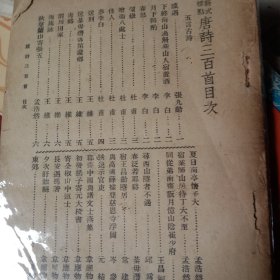 新式標點 唐詩三百首目次
五言古詩
感遇 張九齡 一
下終南山過斛斯山人宿置酒 李白
月下獨酌 李白
春思 李白
望嶽 杜甫
贈衛八處士 杜甫
佳人 杜甫
夢李白 杜甫
送別 王維
送綦毋潛落第還鄉 王維
青谿 王維
渭川田家 王維
西施詠 王維
秋登蘭山寄張五 孟浩然
唐詩三百首 目次
夏日南亭懷辛大 孟浩然
宿業師山房待丁大不至 孟浩然
同從弟南齋翫月憶山陰崔少府 王昌齡
尋西山隱者不遇
春泛若耶溪 綦毋潛
宿王昌齡隱居 常建
與高適薛據登慈恩寺浮圖 岑參
賊退示官吏 元結
郡齋雨中與諸文士燕集 韋應物
初發揚子寄元大校書 韋應物
寄全椒山中道士 韋應物
長安遇馮著 韋應物
夕次盱眙縣 韋應物
東郊 韋應物